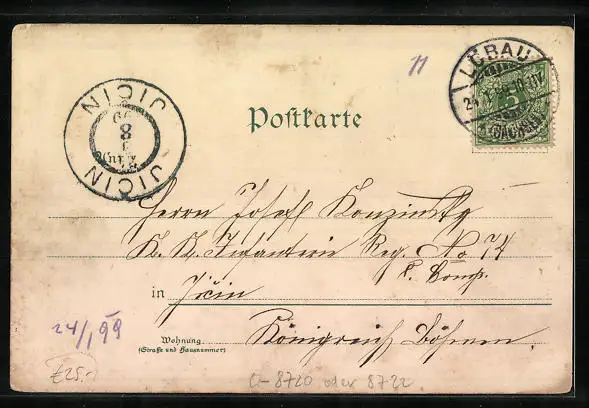 11
LÖBAU
(SACHSEN)
5
JICIN
JICIN
99
8
Postkarte
Herrn Josef Konzinsky
K. K. Infanterie Reg. No 74
8. Comp.
in Jičin
Königreich Böhmen.
Wohnung
(Straße und Hausnummer)
24/1 99
£25.-
C-8720 oder 8722